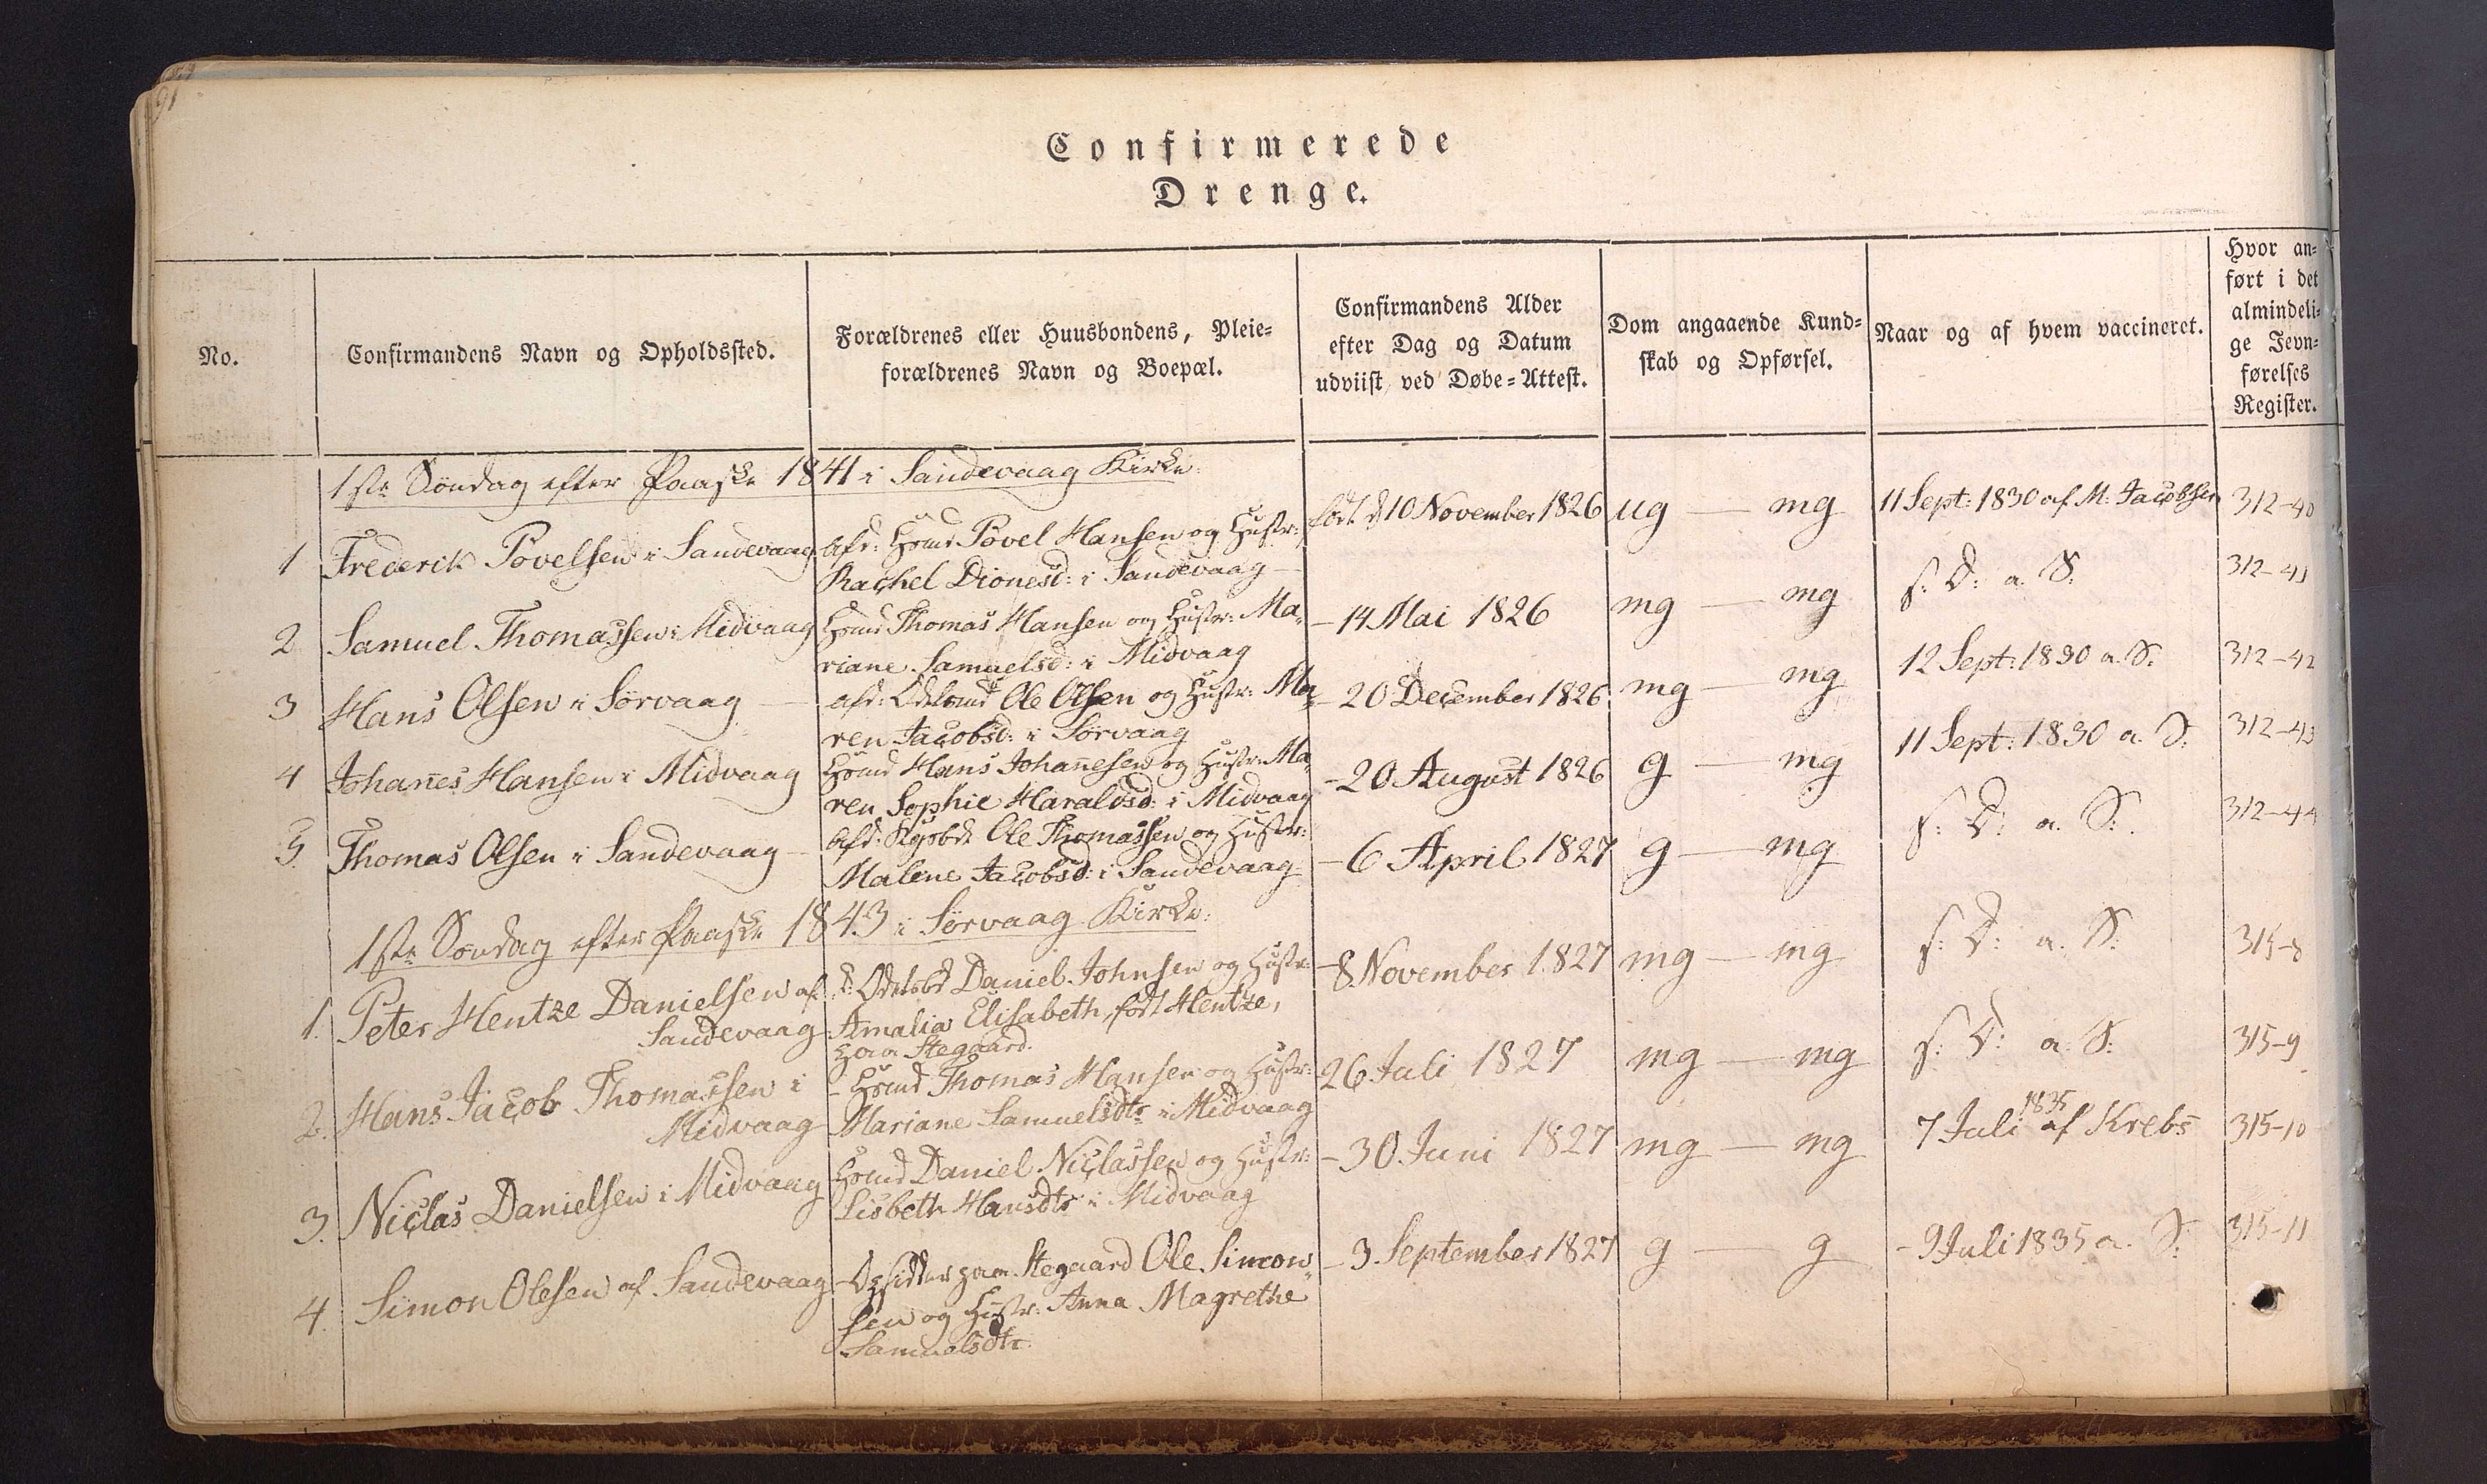 91
Confirmerede
Drenge.
No.
Confirmandens Navn og Opholdssted.
Forældrenes eller Huusbondens, Pleie-
forældrenes Navn og Boepæl.
Confirmandens Alder
efter Dag og Datum
udviist ved Døbe-Attest.
Dom angaaende Kund-
skab og Opførsel.
Naar og af hvem vaccineret.
Hvor an-
ført i det
almindeli-
ge Jevn-
førelses
Register.
1ste Søndag efter Paaske 1841 i Sandevaag Kirke.
1 Frederik Povelsen i Sandevaag
afd: Povel Hansen og Hustr:
Rachel Dionesd: i Sandevaag
født d 10 November 1826
ug — mg
11 Sept: 1830 af M: Jacobsen
312-40
2 Samuel Thomassen i Midvaag
Thomas Hansen og Hustr: Ma-
riane Samuelsd: i Midvaag
- 14 Mai 1826
mg — mg
s: D: a. S:
312-41
3 Hans Olsen i Sørvaag
afd: Ole Olsen og Hustr: Ma-
ren Jacobsd: i Sørvaag
- 20 December 1826
mg — mg
12 Sept: 1830 a. S:
312-42
4 Johan̄es Hansen i Midvaag
Hans Johan̄esen og Hustr: Ma-
ren Sophie Haraldsd: i Midvaag
- 20 August 1826
g — mg
11 Sept: 1830 a. S:
312-43
5. Thomas Olsen i Sandevaag
Afd: Kgsbd: Ole Thomassen og Hustr:
Malene Jacobsd: i Sandevaag
- 6 April 1827
g — mg
s: D: a. S:
312-44
1ste Søndag efter Paaske 1843 i Sørvaag Kirke.
1. Peter Hentze Danielsen af
Sandevaag
Daniel Johnsen og Hustr
Amalia Elisabeth, født Hentze,
paa Stegaard.
- 8 November 1827
mg — mg
s: D: a. S:
315-8
2. Hans Jacob Thomassen i
Midvaag
- Thomas Hansen og Hustr:
Mariane Samuelsdtr i Midvaag
26 Juli 1827
mg — mg
s: D: a. S:
315-9
3. Niclas Danielsen i Midvaag
Daniel Niclassen og Hustr:
Lisbeth Hansdtr i Midvaag
- 30 Juni 1827
mg — mg
7 Juli 1835 af Krebs
315-10
4. Simon Olesen af Sandevaag
Opsidder paa Stegaard Ole Simon-
sen og Hustr: Anna Magrethe
Samuelsdtr.
- 3 September 1827
g — g
- 9 Juli 1835 a. S:
315-11